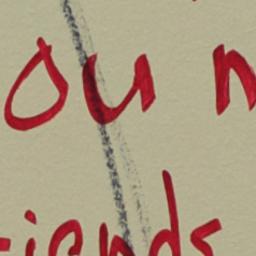 ou n
iends